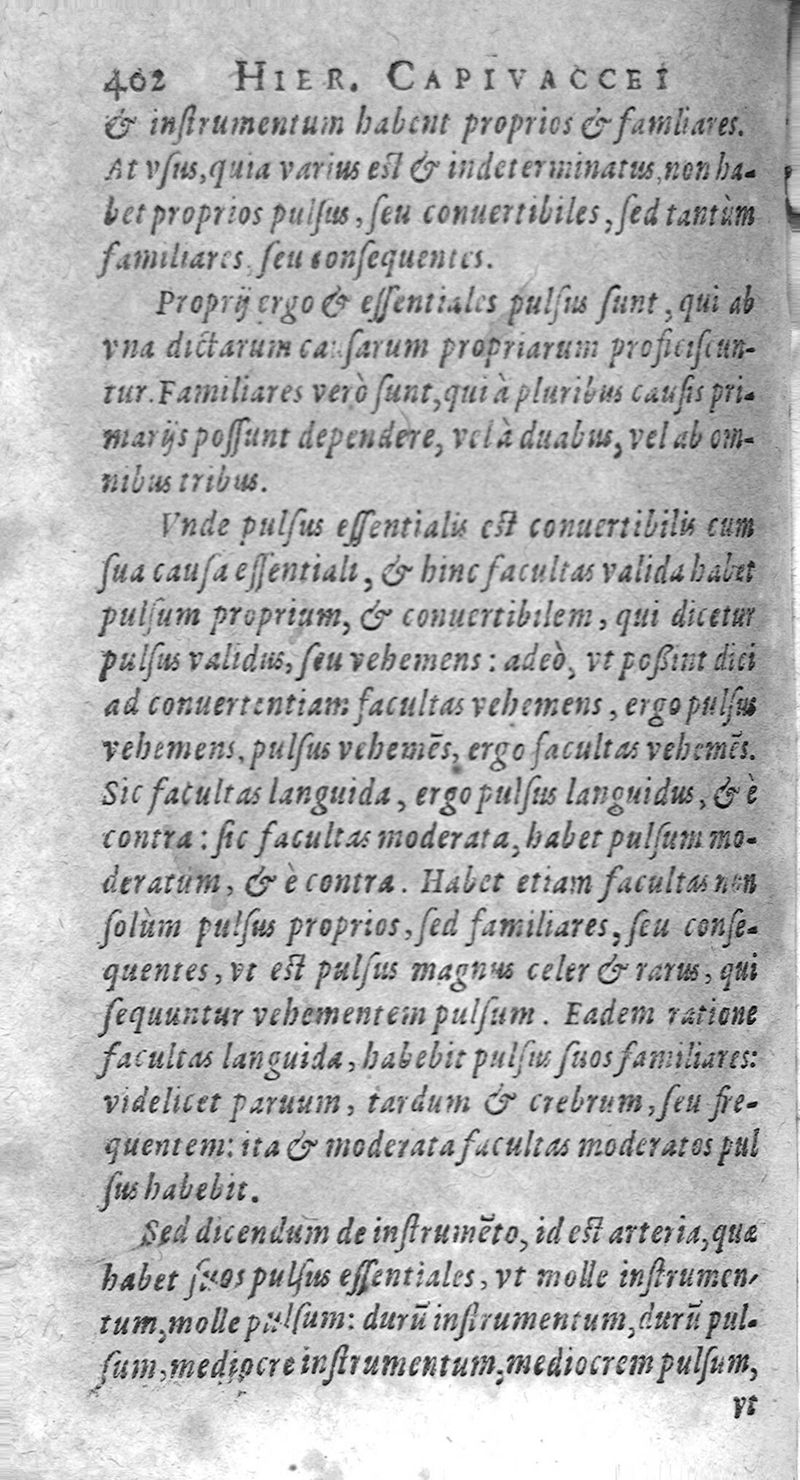 402 HIER. CAPIVACCEI
& inſtrumentum habent proprios & familiares.
At vſus, quia varius eſt & indeterminatus, non ha-
bet proprios pulſus, ſeu conuertibiles, ſed tantùm
familiares, ſeu conſequentes.
Proprij ergo & eſſentiales pulſus ſunt, qui ab
vna dictarum cauſarum propriarum proficiſcun-
tur. Familiares verò ſunt, qui à pluribus cauſis pri-
marijs poſſunt dependère, vel à duabus, vel ab om-
nibus tribus.
Vnde pulſus eſſentialis eſt conuertibilis cum
ſua cauſa eſſentiali, & hinc facultas valida habet
pulſum proprium, & conuertibilem, qui dicetur
pulſus validus, ſeu vehemens: adeò, vt poßint dici
ad conuertentiam facultas vehemens, ergo pulſus
vehemens, pulſus vehemēs, ergo facultas vehemēs.
Sic facultas languida, ergo pulſus languidus, & è
contra: ſic facultas moderata, habet pulſum mo-
deratum, & è contra. Habet etiam facultas non
ſolùm pulſus proprios, ſed familiares, ſeu conſe-
quentes, vt eſt pulſus magnus celer & rarus, qui
ſequuntur vehementem pulſum. Eadem ratione
facultas languida, habebit pulſus ſuos familiares:
videlicet paruum, tardum & crebrum, ſeu fre-
quentem: ita & moderata facultas moderatos pul
ſus habebit.
Sed dicendum de inſtrumēto, id eſt arteria, quæ
habet ſuos pulſus eſſentiales, vt molle inſtrumen-
tum, molle pulſum: durū inſtrumentum, durū pul-
ſum, mediocre inſtrumentum, mediocrem pulſum,
vt